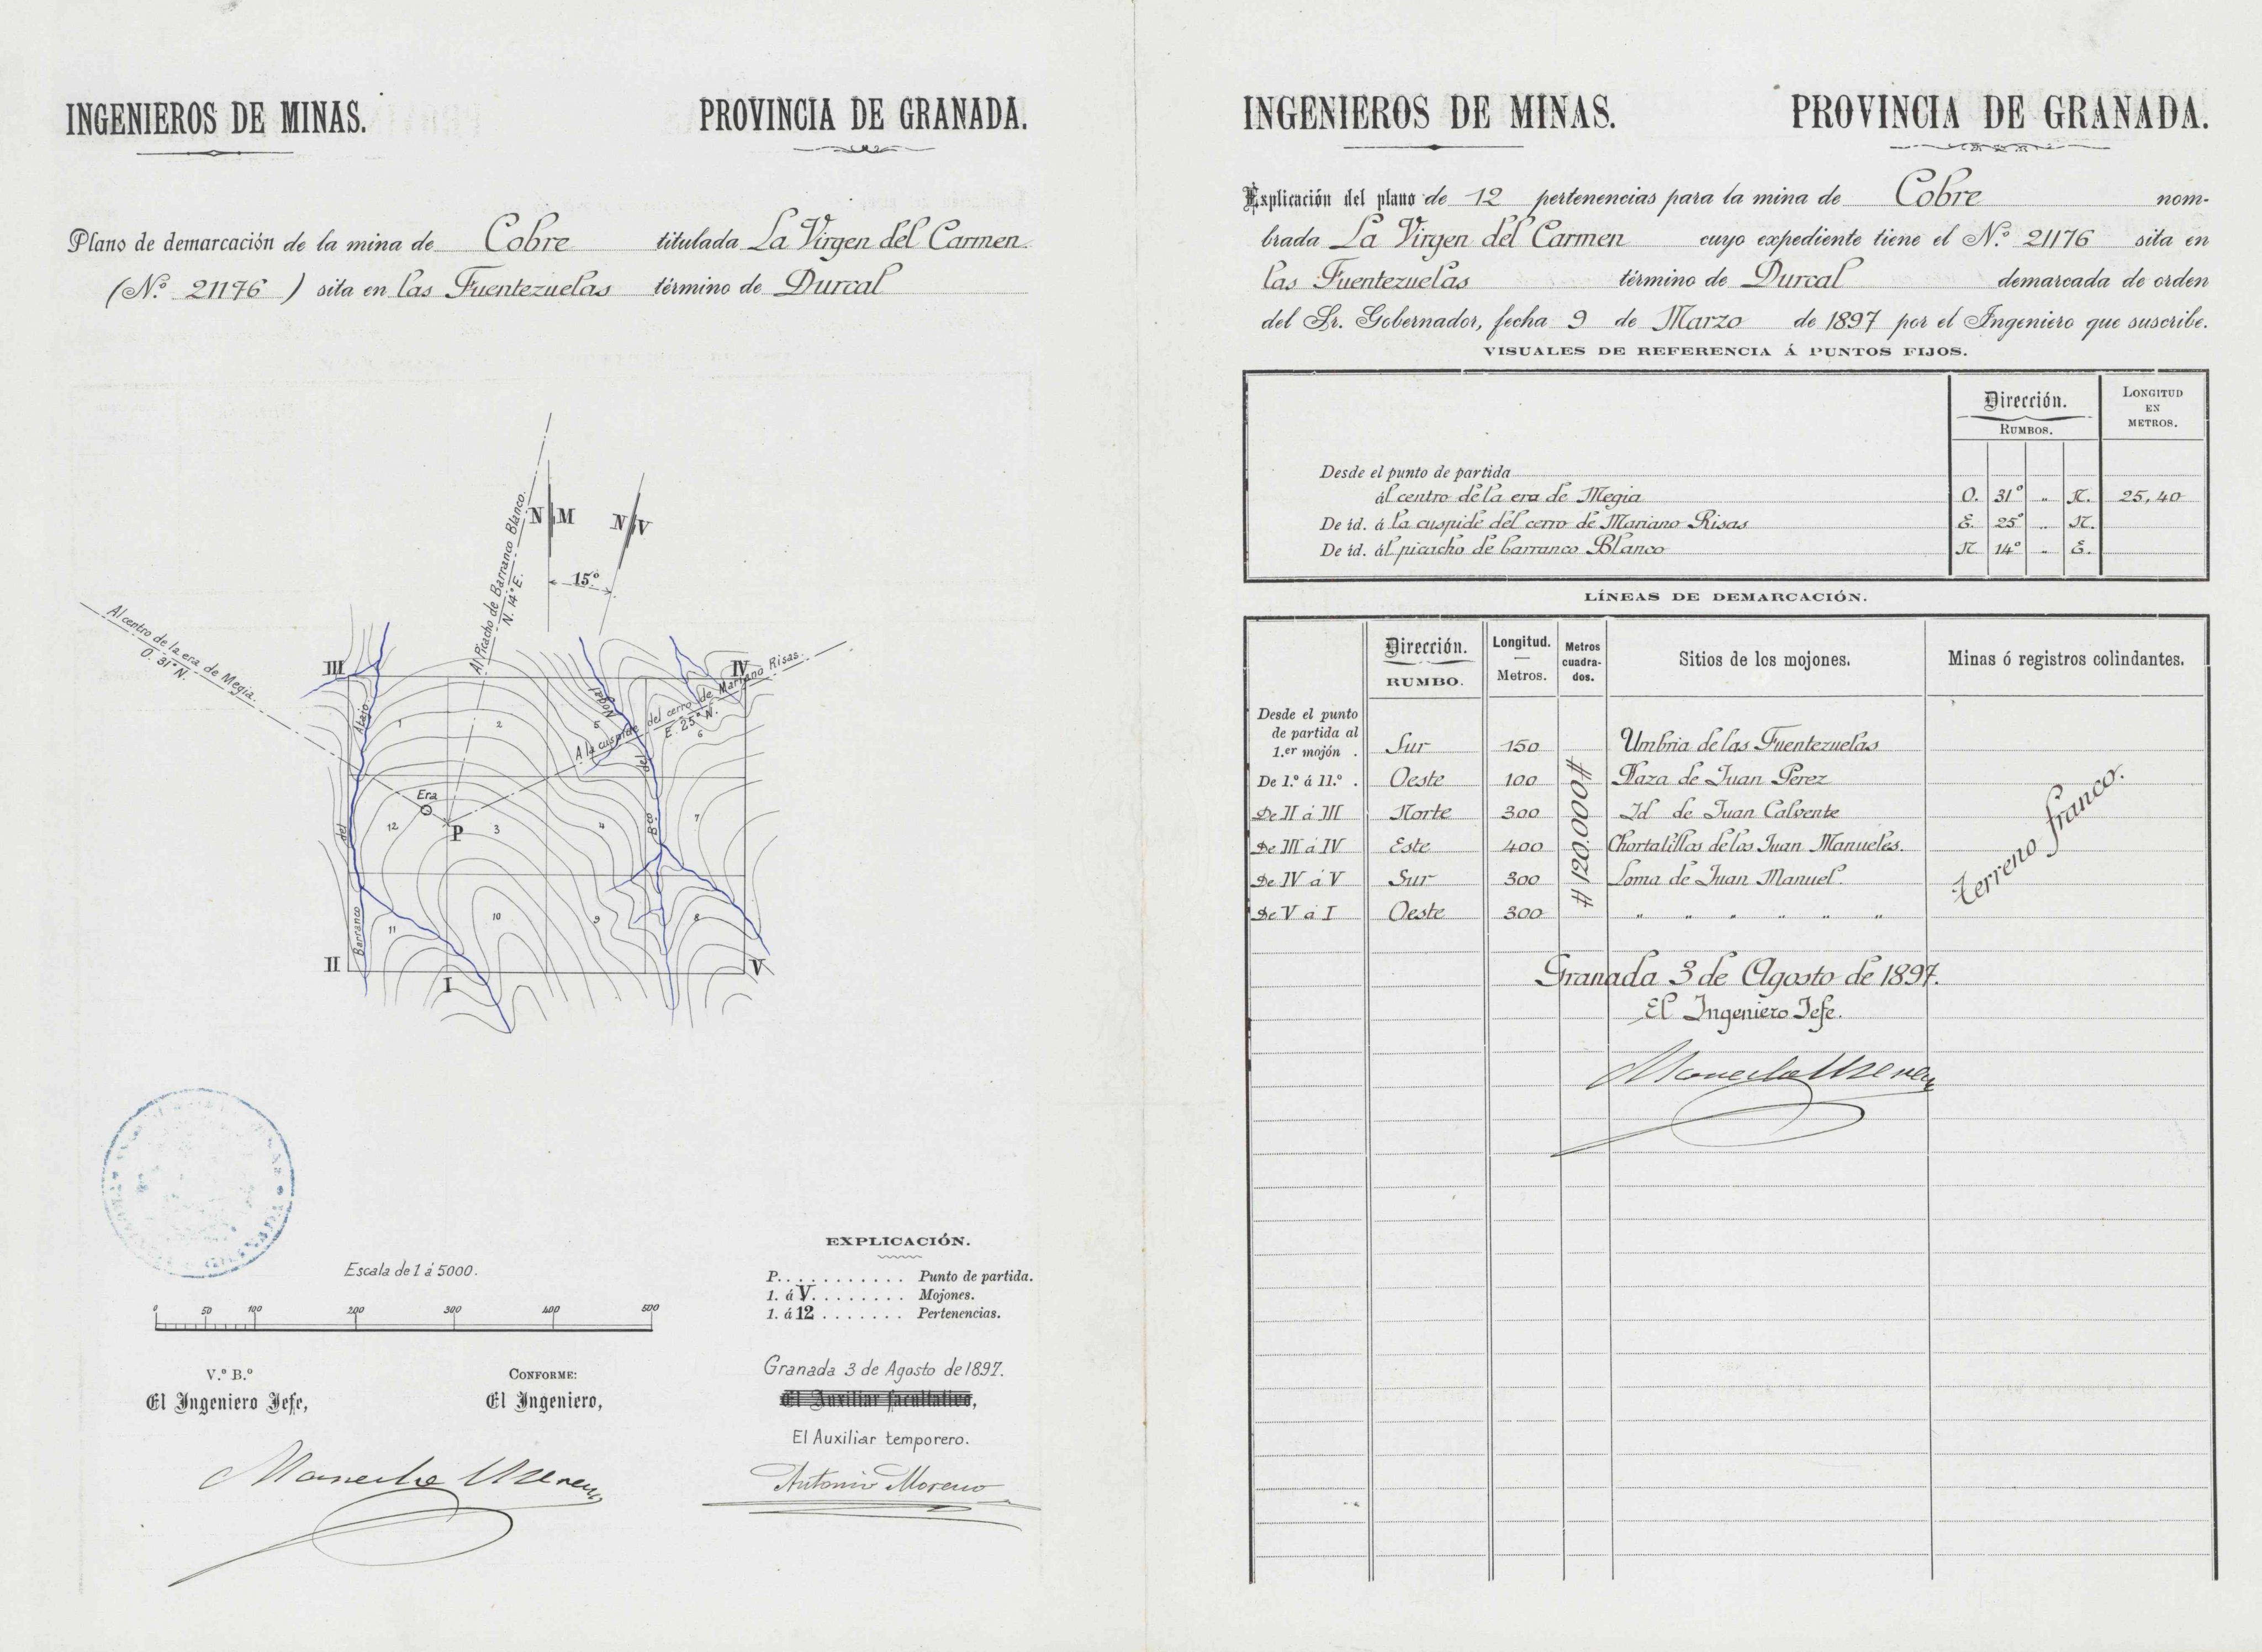 INGENIEROS DE MINAS. PROVINCIA DE GRANADA.
Plano de demarcación de la mina de Cobre titulada La Virgen del Carmen.
(N.º 21176) sita en las Fuentezuelas término de Durcal
Al Picacho de Barranco Blanco.
N. 14º E.
N M
N V
15º
Al centro de la era de Megia.
O. 31º N.
A la cuspide del cerro de Mariano Risas.
E. 25º N.
III
IV
Barranco del Atajo
Bco del Nogal
1
2
5
6
Era
12
P
3
4
7
11
10
9
8
II
I
V
Escala de 1 á 5000.
0 50 100 200 300 400 500
EXPLICACIÓN.
P. . . . . . . . . . . . Punto de partida.
1. á V. . . . . . . . Mojones.
1. á 12 . . . . . . . Pertenencias.
Granada 3 de Agosto de 1897.
El Auxiliar facultativo,
El Auxiliar temporero.
Antonio Moreno
V.º B.º
El Ingeniero Jefe,
CONFORME:
El Ingeniero,
INGENIEROS DE MINAS. PROVINCIA DE GRANADA.
Explicación del plano de 12 pertenencias para la mina de Cobre nom-
brada La Virgen del Carmen cuyo expediente tiene el N.º 21176 sita en
las Fuentezuelas término de Durcal demarcada de orden
del Sr. Gobernador, fecha 9 de Marzo de 1897 por el Ingeniero que suscribe.
VISUALES DE REFERENCIA Á PUNTOS FIJOS.
Dirección. LONGITUD EN METROS.
RUMBOS.
Desde el punto de partida
ál centro de la era de Megia O. 31º " N. 25,40
De id. á la cuspide del cerro de Mariano Risas E. 25º " N.
De id. ál picacho de barranco Blanco N 14º " E.
LÍNEAS DE DEMARCACIÓN.
Dirección. RUMBO. Longitud. Metros. Metros cuadra-dos. Sitios de los mojones. Minas ó registros colindantes.
Desde el punto
de partida al
1.er mojón . Sur 150 Umbria de las Fuentezuelas
De 1.º á 11.º . Oeste 100 Haza de Juan Perez
De II á III Norte 300 Id de Juan Calvente
De III á IV Este 400 Chortalillos de los Juan Manueles.
De IV á V Sur 300 Loma de Juan Manuel.
De V á I Oeste 300 " " " " " "
# 120.000 #
terreno franco.
Granada 3 de Agosto de 1897.
El Ingeniero Jefe.